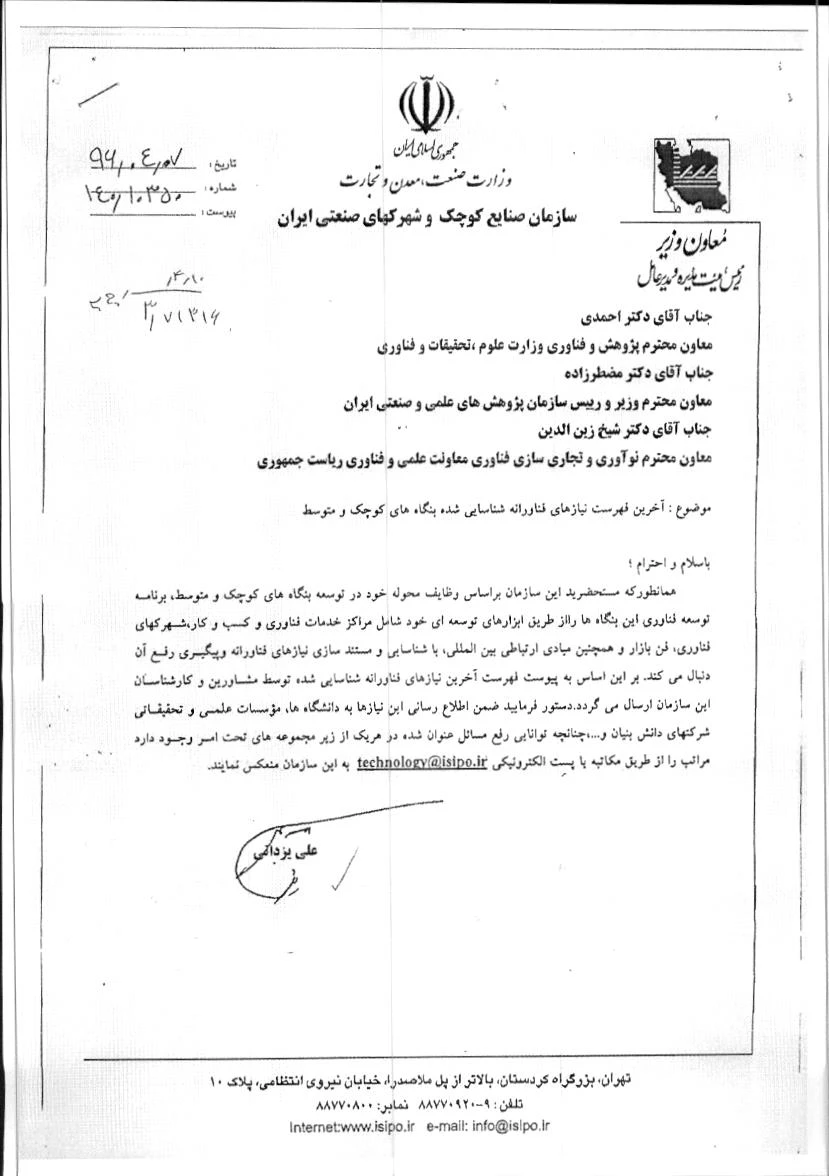 جمهوری اسلامی ایران
وزارت صنعت، معدن و تجارت
سازمان صنایع کوچک و شهرکهای صنعتی ایران
تاریخ : ۹۶,۰۴,۰۷
شماره :
پیوست :
معاون وزیر
رئیس هیئت مدیره و مدیرعامل
جناب آقای دکتر احمدی
معاون محترم پژوهش و فناوری وزارت علوم ،تحقیقات و فناوری
جناب آقای دکتر مضطرزاده
معاون محترم وزیر و رییس سازمان پژوهش های علمی و صنعتی ایران
جناب آقای دکتر شیخ زین الدین
معاون محترم نوآوری و تجاری سازی فناوری معاونت علمی و فناوری ریاست جمهوری
موضوع : آخرین فهرست نیازهای فناورانه شناسایی شده بنگاه های کوچک و متوسط
باسلام و احترام ؛
همانطورکه مستحضرید این سازمان براساس وظایف محوله خود در توسعه بنگاه های کوچک و متوسط، برنامه
توسعه فناوری این بنگاه ها رااز طریق ابزارهای توسعه ای خود شامل مراکز خدمات فناوری و کسب و کار،شهرکهای
فناوری، فن بازار و همچنین مبادی ارتباطی بین المللی، با شناسایی و مستند سازی نیازهای فناورانه وپیگیری رفع آن
دنبال می کند. بر این اساس به پیوست فهرست آخرین نیازهای فناورانه شناسایی شده توسط مشاورین و کارشناسان
این سازمان ارسال می گردد.دستور فرمایید ضمن اطلاع رسانی این نیازها به دانشگاه ها، مؤسسات علمی و تحقیقاتی
شرکتهای دانش بنیان و...،چنانچه توانایی رفع مسائل عنوان شده در هریک از زیر مجموعه های تحت امر وجود دارد
مراتب را از طریق مکاتبه یا پست الکترونیکی technology@isipo.ir به این سازمان منعکس نمایند.
علی یزدانی
تهران، بزرگراه کردستان، بالاتر از پل ملاصدرا، خیابان نیروی انتظامی، پلاک ۱۰
تلفن : ۹-۸۸۷۷۰۹۲۰ نمابر: ۸۸۷۷۰۸۰۰
Internet:www.isipo.ir e-mail: info@isipo.ir